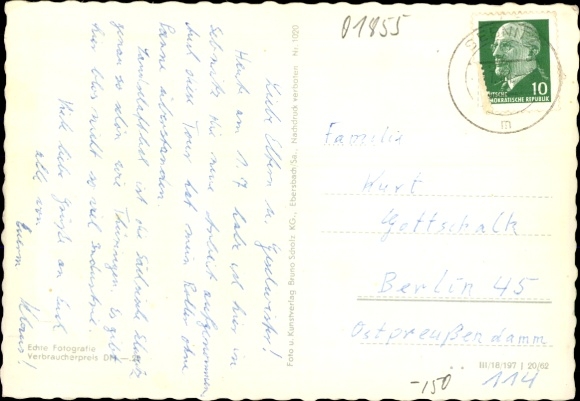 01855
Liebe Eltern u. Geschwister!
Heute am 1.7 habe ich hier in
Sebnitz die neue Arbeit aufgenommen.
Auf der Tour hat mein Roller ohne
Panne überstanden.
Landschaftlich ist die Sächsische Schweiz
genau so schön wie Thüringen. Es gibt
hier blos nicht so viel Industrie.
Viele liebe Grüße an Euch
alle von
Euerm
Klaus!
Echte Fotografie
Verbraucherpreis DM
Foto u. Kunstverlag Bruno Scholz KG., Ebersbach/Sa., Nachdruck verboten Nr. 1020
10
DEMOKRATISCHE REPUBLIK
Familie
Kurt
Gottschalk
Berlin 45
Ostpreußendamm
114
III/16/197 | 20/62
-150